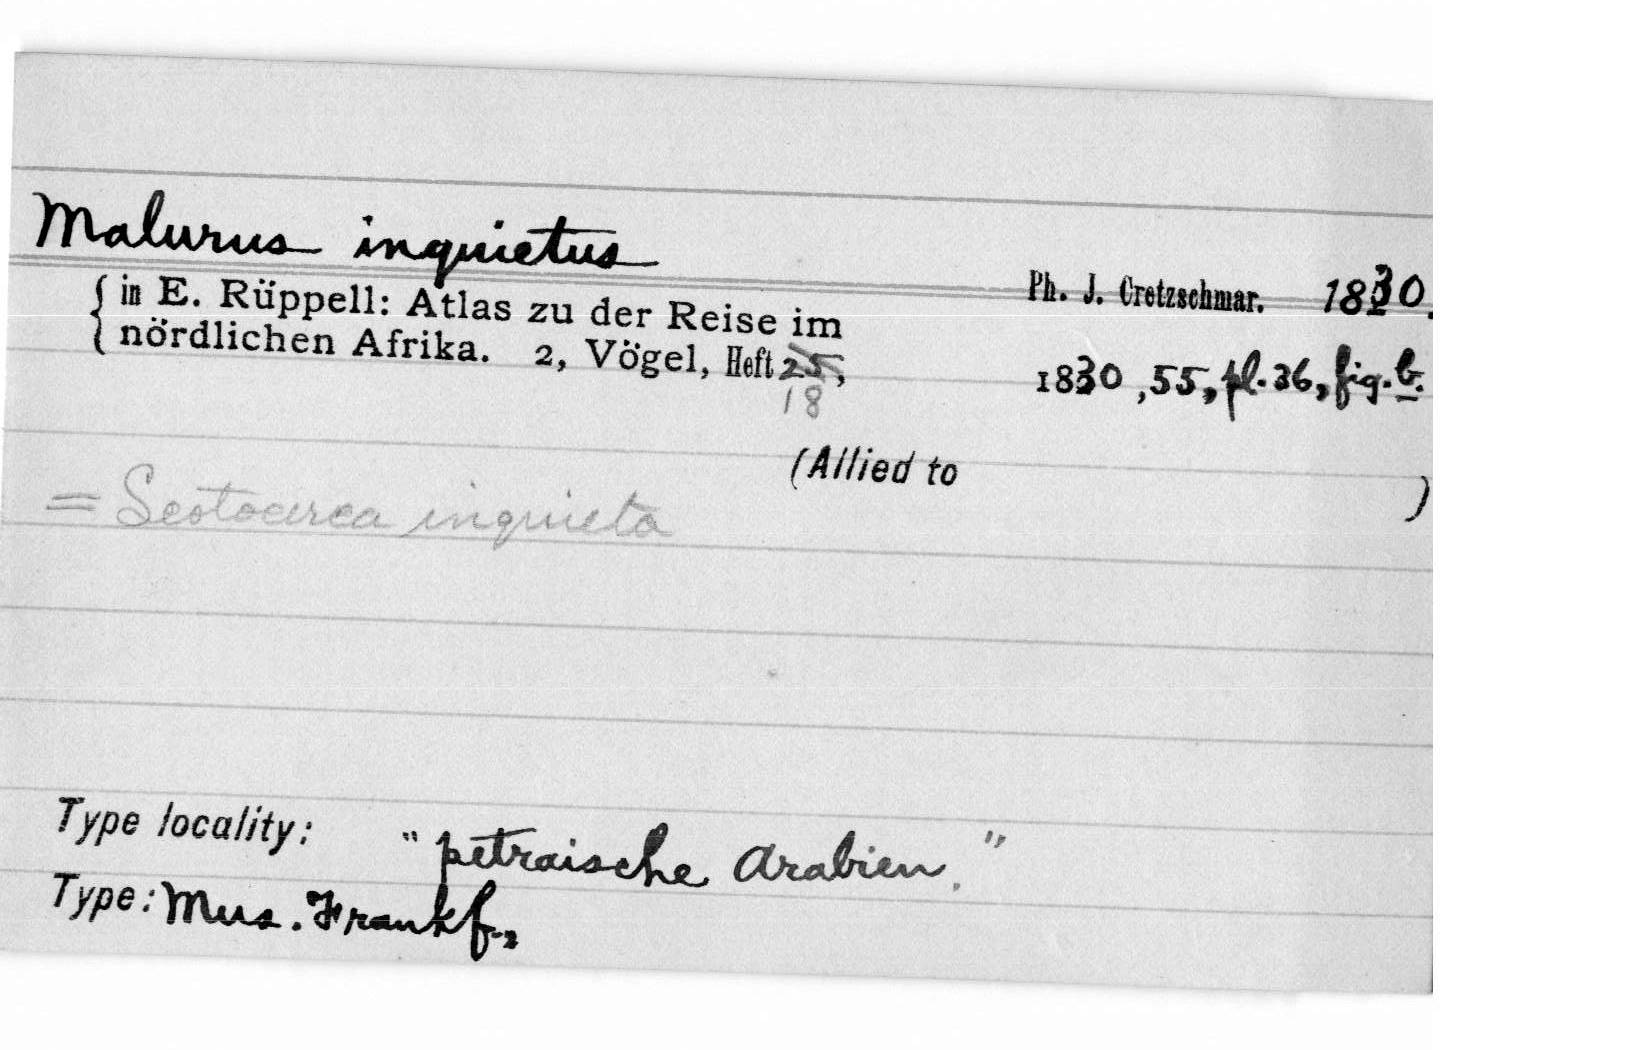 Malurus inquietus
Ph. J. Cretzschmar. 1830.
in E. Rüppell: Atlas zu der Reise im
nördlichen Afrika. 2, Vögel, Heft 25, 1830, 55, pl. 36, fig. b.
18
(Allied to )
= Scotocerca inquieta
Type locality: "petraische Arabien."
Type: Mus. Frankf.